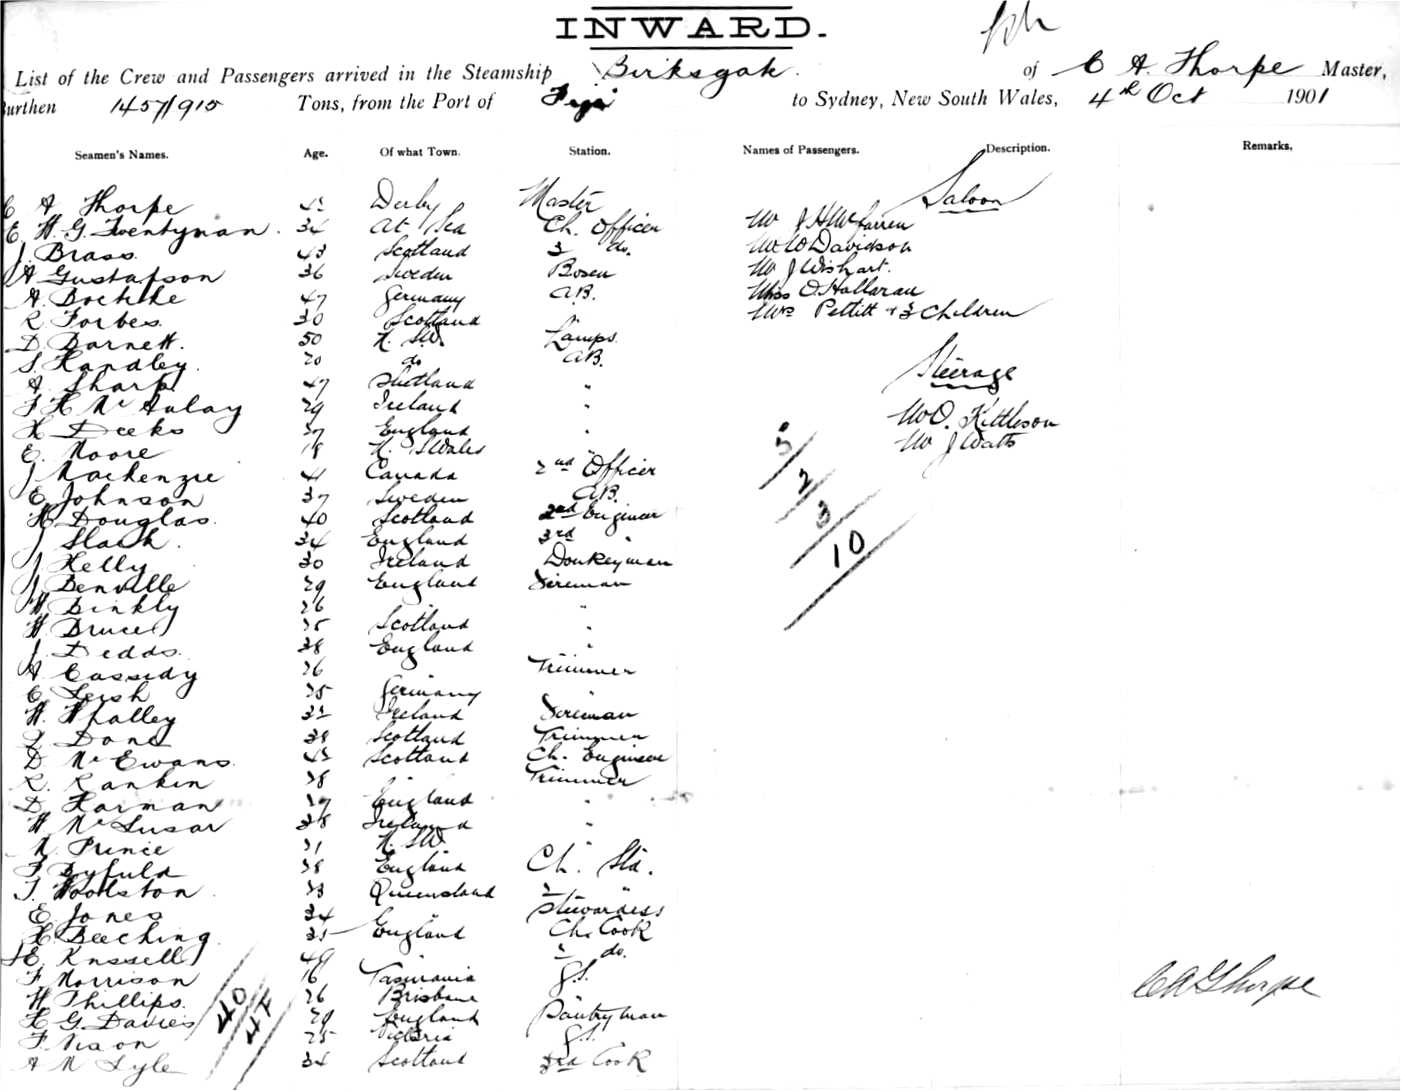 INWARD.
List of the Crew and Passengers arrived in the Steamship Birksgate of C A. Thorpe Master,
Burthen 1457/915 Tons, from the Port of Fiji to Sydney, New South Wales, 4th Oct 1901
Seamen's Names. Age. Of what Town. Station. Names of Passengers. Description. Remarks.
C A Thorpe Derby Master
E. H. G. Twentyman. 34 At Sea Ch. Officer
J. Brass. 43 Scotland 3 do.
A Gustafson 36 Sweden Bosen
A. 47 Germany AB.
R. Forbes. 30 Scotland
D Barnett. 50 N. SW. Lamps.
S. Handley. do AB.
A. Sharp 47 Shetland "
F H McAulay 29 Ireland "
H Deeks 37 England "
E. Moore 18 N. SWales
J Mackenzie 41 Canada 2nd Officer
E. Johnson 37 Sweden AB.
H Douglas. 40 Scotland 2nd Engineer
J 34 England 3rd "
J Kelly 30 Ireland Donkeyman
J Benville 29 England Fireman
H Binkly 26 " "
H Bruce 35 Scotland "
J. Dedds. 38 England "
A Cassidy 26 Trimmer
E 25 Germany "
H. Whalley Ireland Fireman
Scotland Trimmer
D. McEwans. 43 Scotland Ch. Engineer
R. Rankin 28 " Trimmer
D. Harman 27 England "
H McLusar 38 Ireland "
N. Prince 21 N. SW.
F Byfuld 38 England Ch. Std.
T. Woolston 23 Queensland 2 "
E. Jones 34 " Stewardess
H. Beeching 35 England Ch. Cook
E. Knssell 49 " 2 do.
F Morrison 16 Tasmania G.S.
H Phillips. 26 Brisbane
H G. Davies 29 England Pantryman
F. Nixon 25 Victoria G.S.
A M Lyle 34 Scotland 3rd Cook
40
47
Saloon
Mr J H McFarren
Mr W Davidson
Mr J Wishart.
Miss O'Hallaran
Mrs Pettitt + 3 Children
Steerage
Mr O. Kittleson
Mr J Watts
5
2
3
10
C A Thorpe